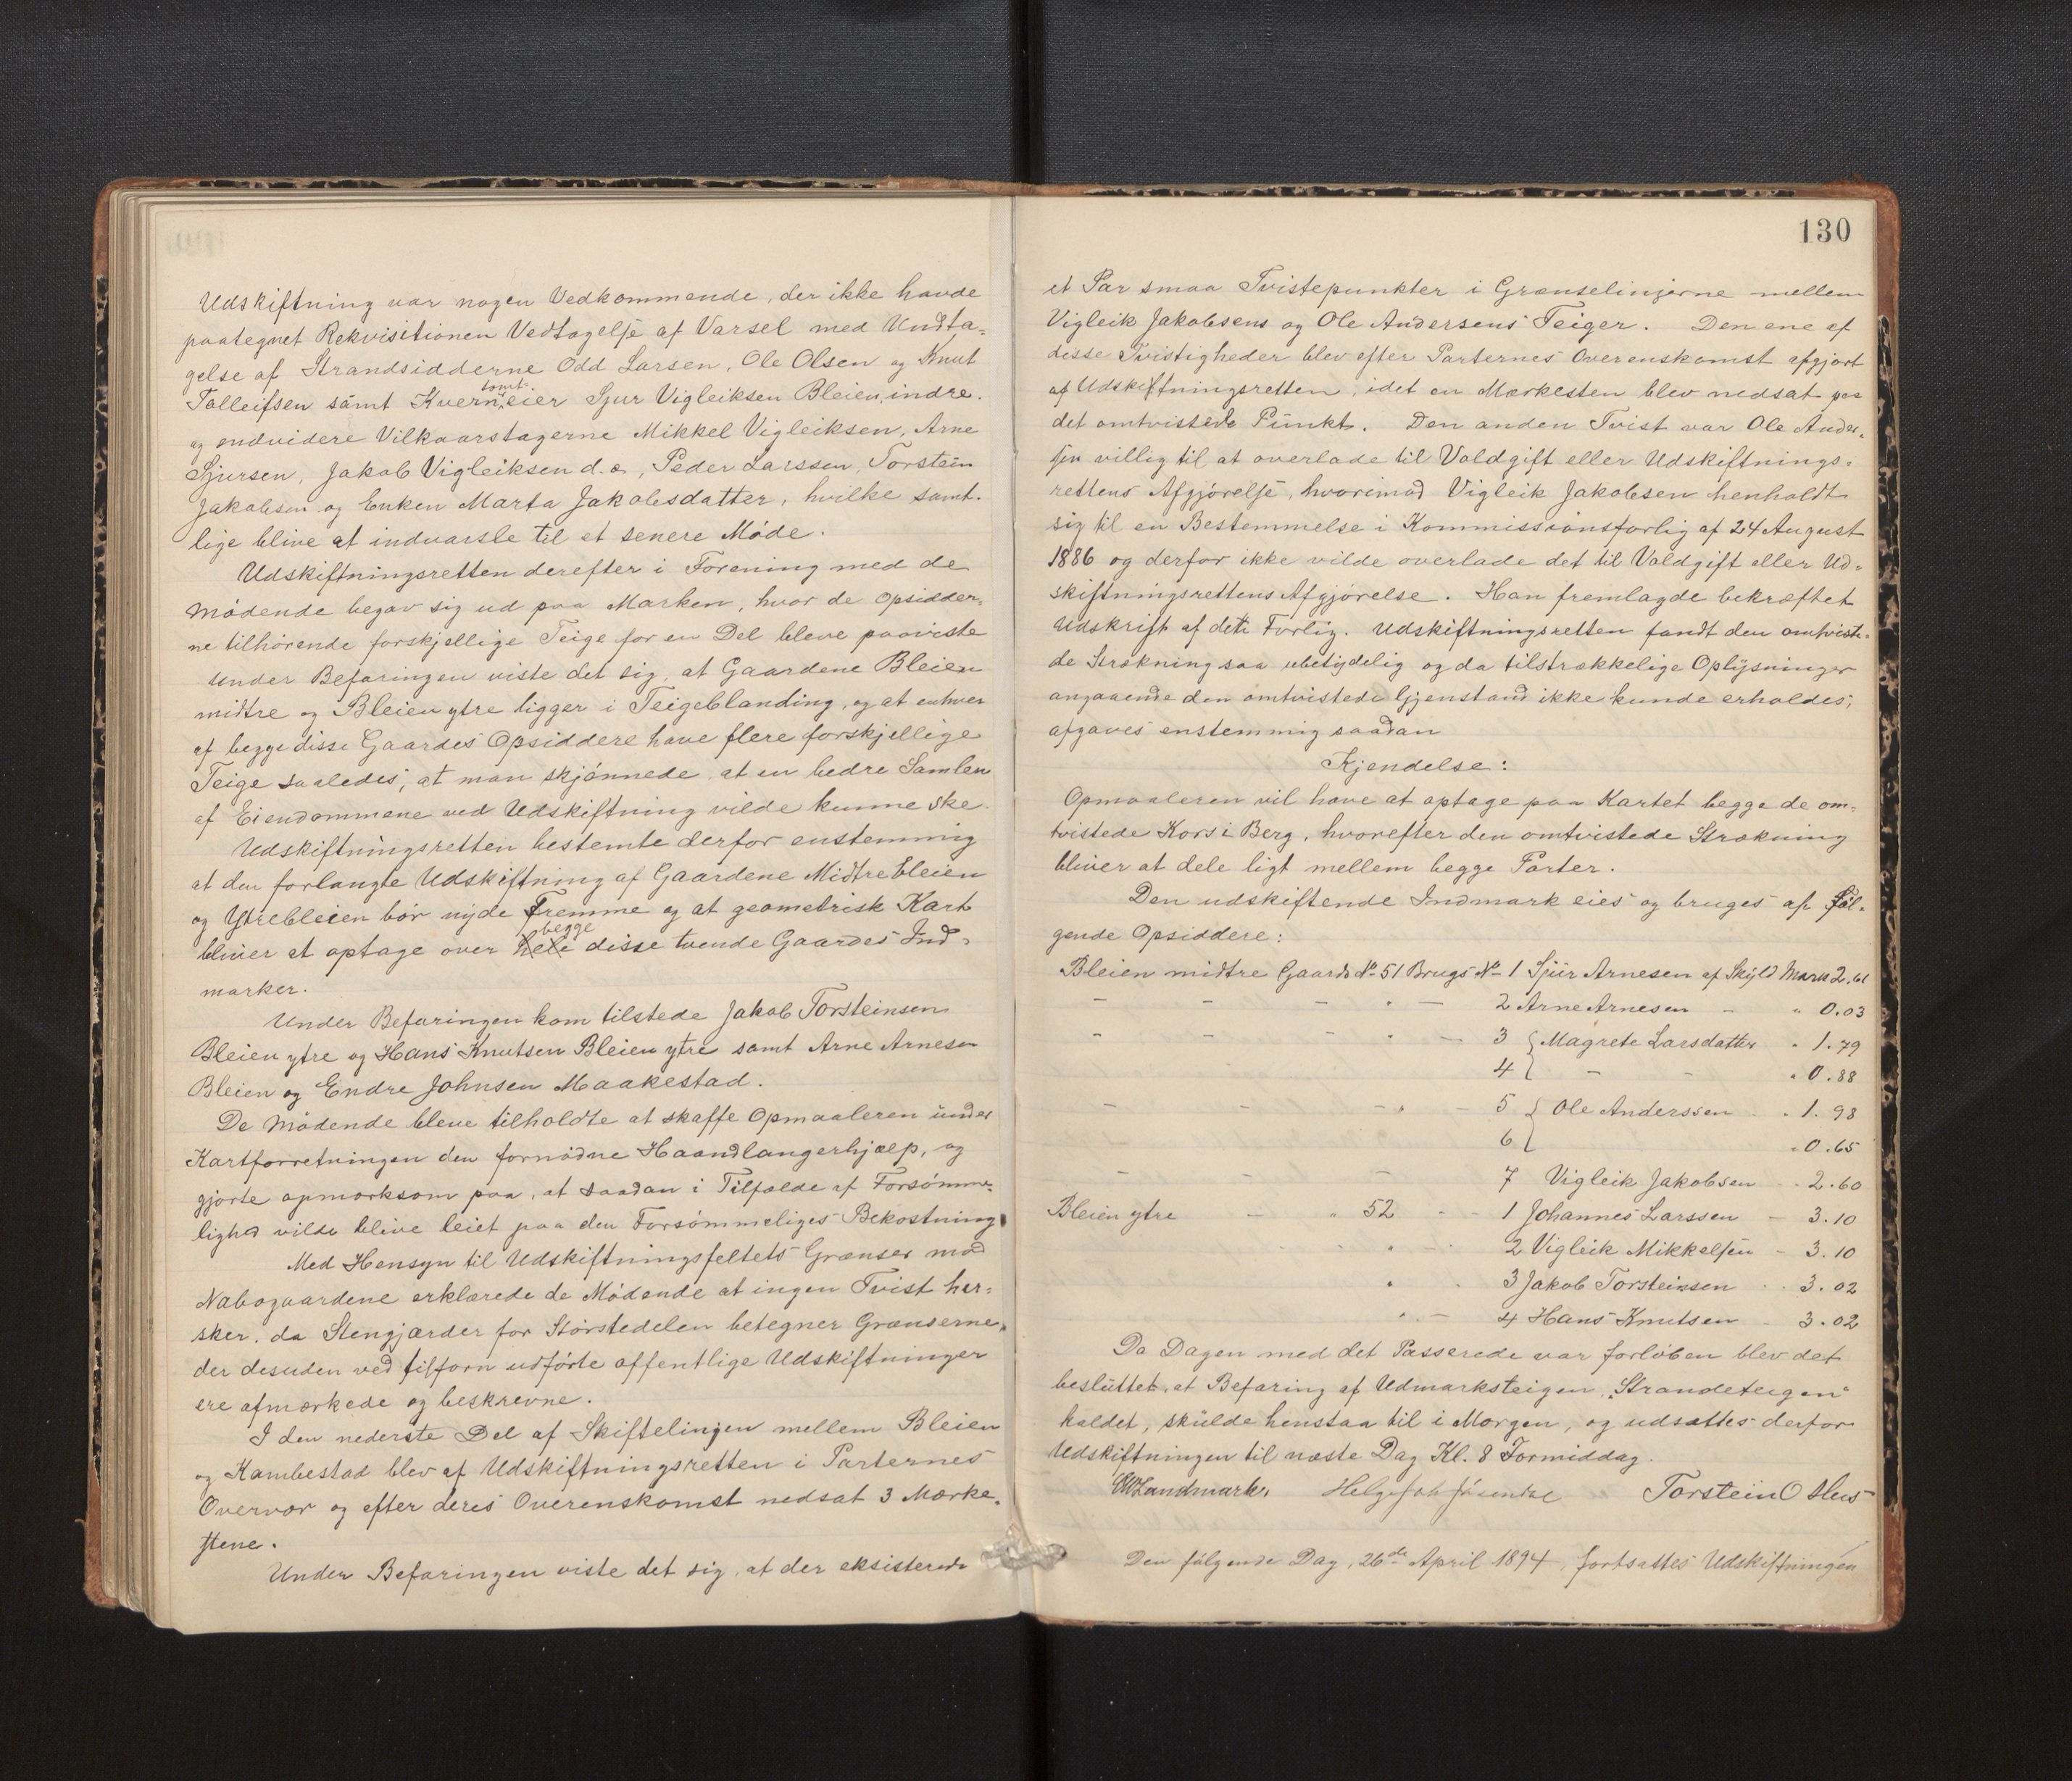 Udskiftning var nogen Vedkommende, der ikke havde
paategnet Rekvisitionen Vedtagelse af Varsel med Undta-
gelse af Strandsidderne Odd Larsen, Ole Olsen og Knut
Tolleifsen samt Kvern tomt eier Sjur Vigleiksen Bleien indre.
og endvidere Vilkaarstagerne Mikkel Vigleiksen, Arne
Sjursen, Jakob Vigleiksen d.æ., Peder Larssen, Torstein
Jakobsen og Enken Marta Jakobsdatter, hvilke samt-
lige blive at indvarsle til et senere Møde.
Udskiftningsretten derefter i Forening med de
Mødende begav sig ud paa Marken, hvor de Opsidder-
ne tilhørende forskjellige Teige for en Del bleve paaviste
Under Befaringen viste det sig, at Gaardene Bleien
midtre og Bleien ytre ligger i Teigeblanding, og at enhver
af begge disse Gaardes Opsiddere have flere forskjellige
Teige saaledes, at man skjønnede at en bedre Samlen
af Eiendommene ved Udskiftning vilde kunne ske.
Udskiftningsretten bestemte derfor enstemmig
at den forlangte Udskiftning af Gaardene Midtrebleien
og Ytrebleien bør nyde Fremme og at geometrisk Kart
bliver at optage over hele begge disse tvende Gaardes Ind-
marker.
Under Befaringen kom tilstede Jakob Torsteinsen
Bleien ytre og Hans Knutsen Bleien ytre samt Arne Arnesen
Bleien og Endre Johnsen Maakestad.
De Mødende bleve tilholdte at skaffe Opmaaleren under
Kartforretningen den fornødne Haandlangerhjælp, og
gjorte opmærksom paa, at saadan i Tilfælde af Forsømme-
lighed vilde blive leiet paa den Forsømmeliges Bekostning
Med Hensyn til Udskiftningsfeltets Grænser mod
Nabogaardene erklærede de Mødende at ingen Tvist her-
sker, da Stengjærder for Størstedelen betegner Grænserne,
der desuden ved tilforn udførte offentlige Udskiftninger
ere afmærkede og beskrevne.
I den nederste Del af Skiftelinjen mellem Bleien
og Kambestad blev af Udskiftningsretten i Parternes
Overvær og efter deres Overenskomst nedsat 3 Mærke-
stene.
Under Befaringen viste det sig, at der eksisterede
130
et Par smaa Tvistepunkter i Grænselinjerne mellem
Vigleik Jakobsens og Ole Andersens Teiger. Den ene af
disse Tvistigheder blev efter Parternes Overenskomst afgjort
af Udskiftningsretten, idet en Mærkesten blev nedsat paa
det omtvistede Punkt. Den anden Tvist var Ole Ander-
sen villig til at overlade til Voldgift eller Udskiftnings-
rettens Afgjørelse, hvorimod Vigleik Jakobsen henholdt
sig til en Bestemmelse i Kommissionsforlig af 24 August
1886 og derfor ikke vilde overlade det til Voldgift eller Ud-
skiftningsrettens Afgjørelse. Han fremlagde bekræftet
Udskrift af dette Forlig. Udskiftningsretten fandt den omtviste-
de Strækning saa ubetydelig og da tilstrækkelige Oplysninger
angaaende den omtvistede Gjenstand ikke kunde erholdes,
afgaves enstemmig saadan
Kjendelse:
Opmaaleren vil have at optage paa Kartet begge de om-
tvistede Kors i Berg, hvorefter den omtvistede Strækning
bliver at dele ligt mellem begge Parter.
Den udskiftende Indmark eies og bruges af føl-
gende Opsiddere:
Bleien midtre Gaards No 51 Brugs No 1 Sjur Arnesen af Skyld Mark 2.61
- - - " - 2 Arne Arnesen - " 0.03
- - - " - 3 { Magrete Larsdatter " 1.79
4 { - - " 0.88
- - - " - 5 { Ole Anderssen " 1.98
6 { " 0.65
- - - 7 Vigleik Jakobsen - 2.60
Bleien ytre - " 52 - - 1 Johannes Larssen - 3.10
" - 2 Vigleik Mikkelsen - 3.10
" - 3 Jakob Torsteinsen - 3.02
" - 4 Hans Knutsen - 3.02
Da Dagen med det Passerede var forløben blev det
besluttet, at Befaring af Udmarksteigen "Strandeteigen"
kaldet, skulde henstaa til i Morgen, og udsattes derfor
Udskiftningen til næste Dag Kl. 8 Formiddag.
Landmark. Torstein O Hus
Den følgende Dag, 26de April 1894, fortsattes Udskiftningen